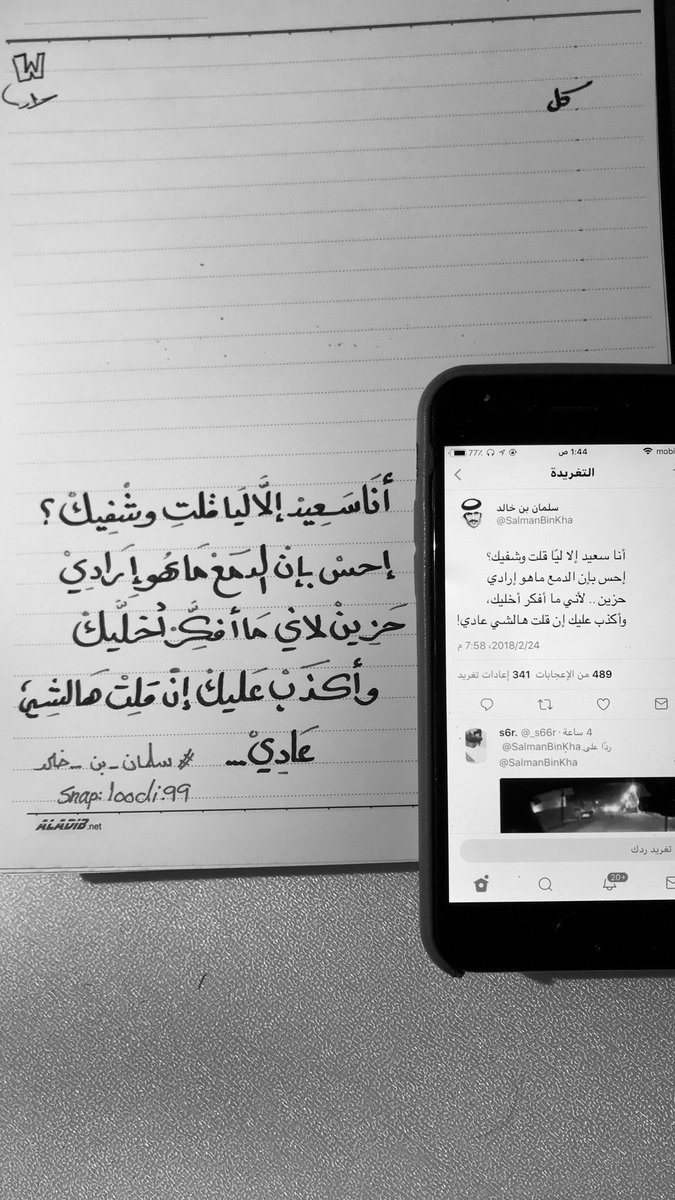 W
كل
أنَا سَعِيدْ إلَّا لَيَا قلتِ وشْفِيكْ؟
إحسْ بإنْ الدمَعْ مَاهُو إِرَادِيْ
حَزِينْ لاني مَا أفكِّرْ أخلَّيكْ
وأكذَبْ عَليكْ إنْ قلِتْ هَالشِيْ
عَادِيْ...
#سلمان_بن_خالد
Snap: loodi:99
ALADIB.net
77٪ 1:44 ص mobi
التغريدة
سلمان بن خالد
@SalmanBinKha
أنا سعيد إلا ليّا قلت وشفيك؟
إحس بإن الدمع ماهو إرادي
حزين .. لأني ما أفكر أخليك،
وأكذب عليك إن قلت هالشي عادي!
2018/2/24، 7:58 م
489 من الإعجابات 341 إعادات تغريد
s6r. @_s66r · 4 ساعة
ردًا على @SalmanBinKha
@SalmanBinKha
تغريد ردك
20+